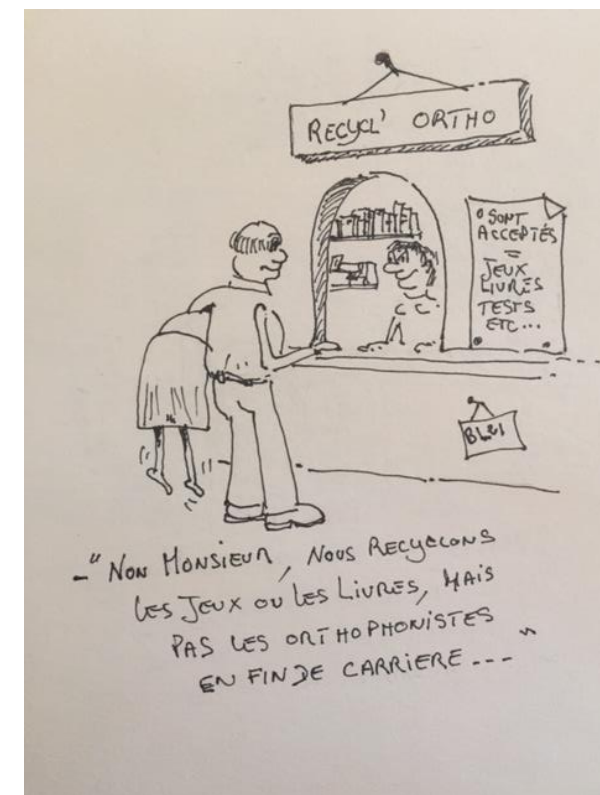 RECYCL' ORTHO
SONT
ACCEPTÉS
=
JEUX
LIVRES
TESTS
ETC...
-"NON MONSIEUR, NOUS RECYCLONS
LES JEUX OU LES LIVRES, MAIS
PAS LES ORTHOPHONISTES
EN FIN DE CARRIERE..."